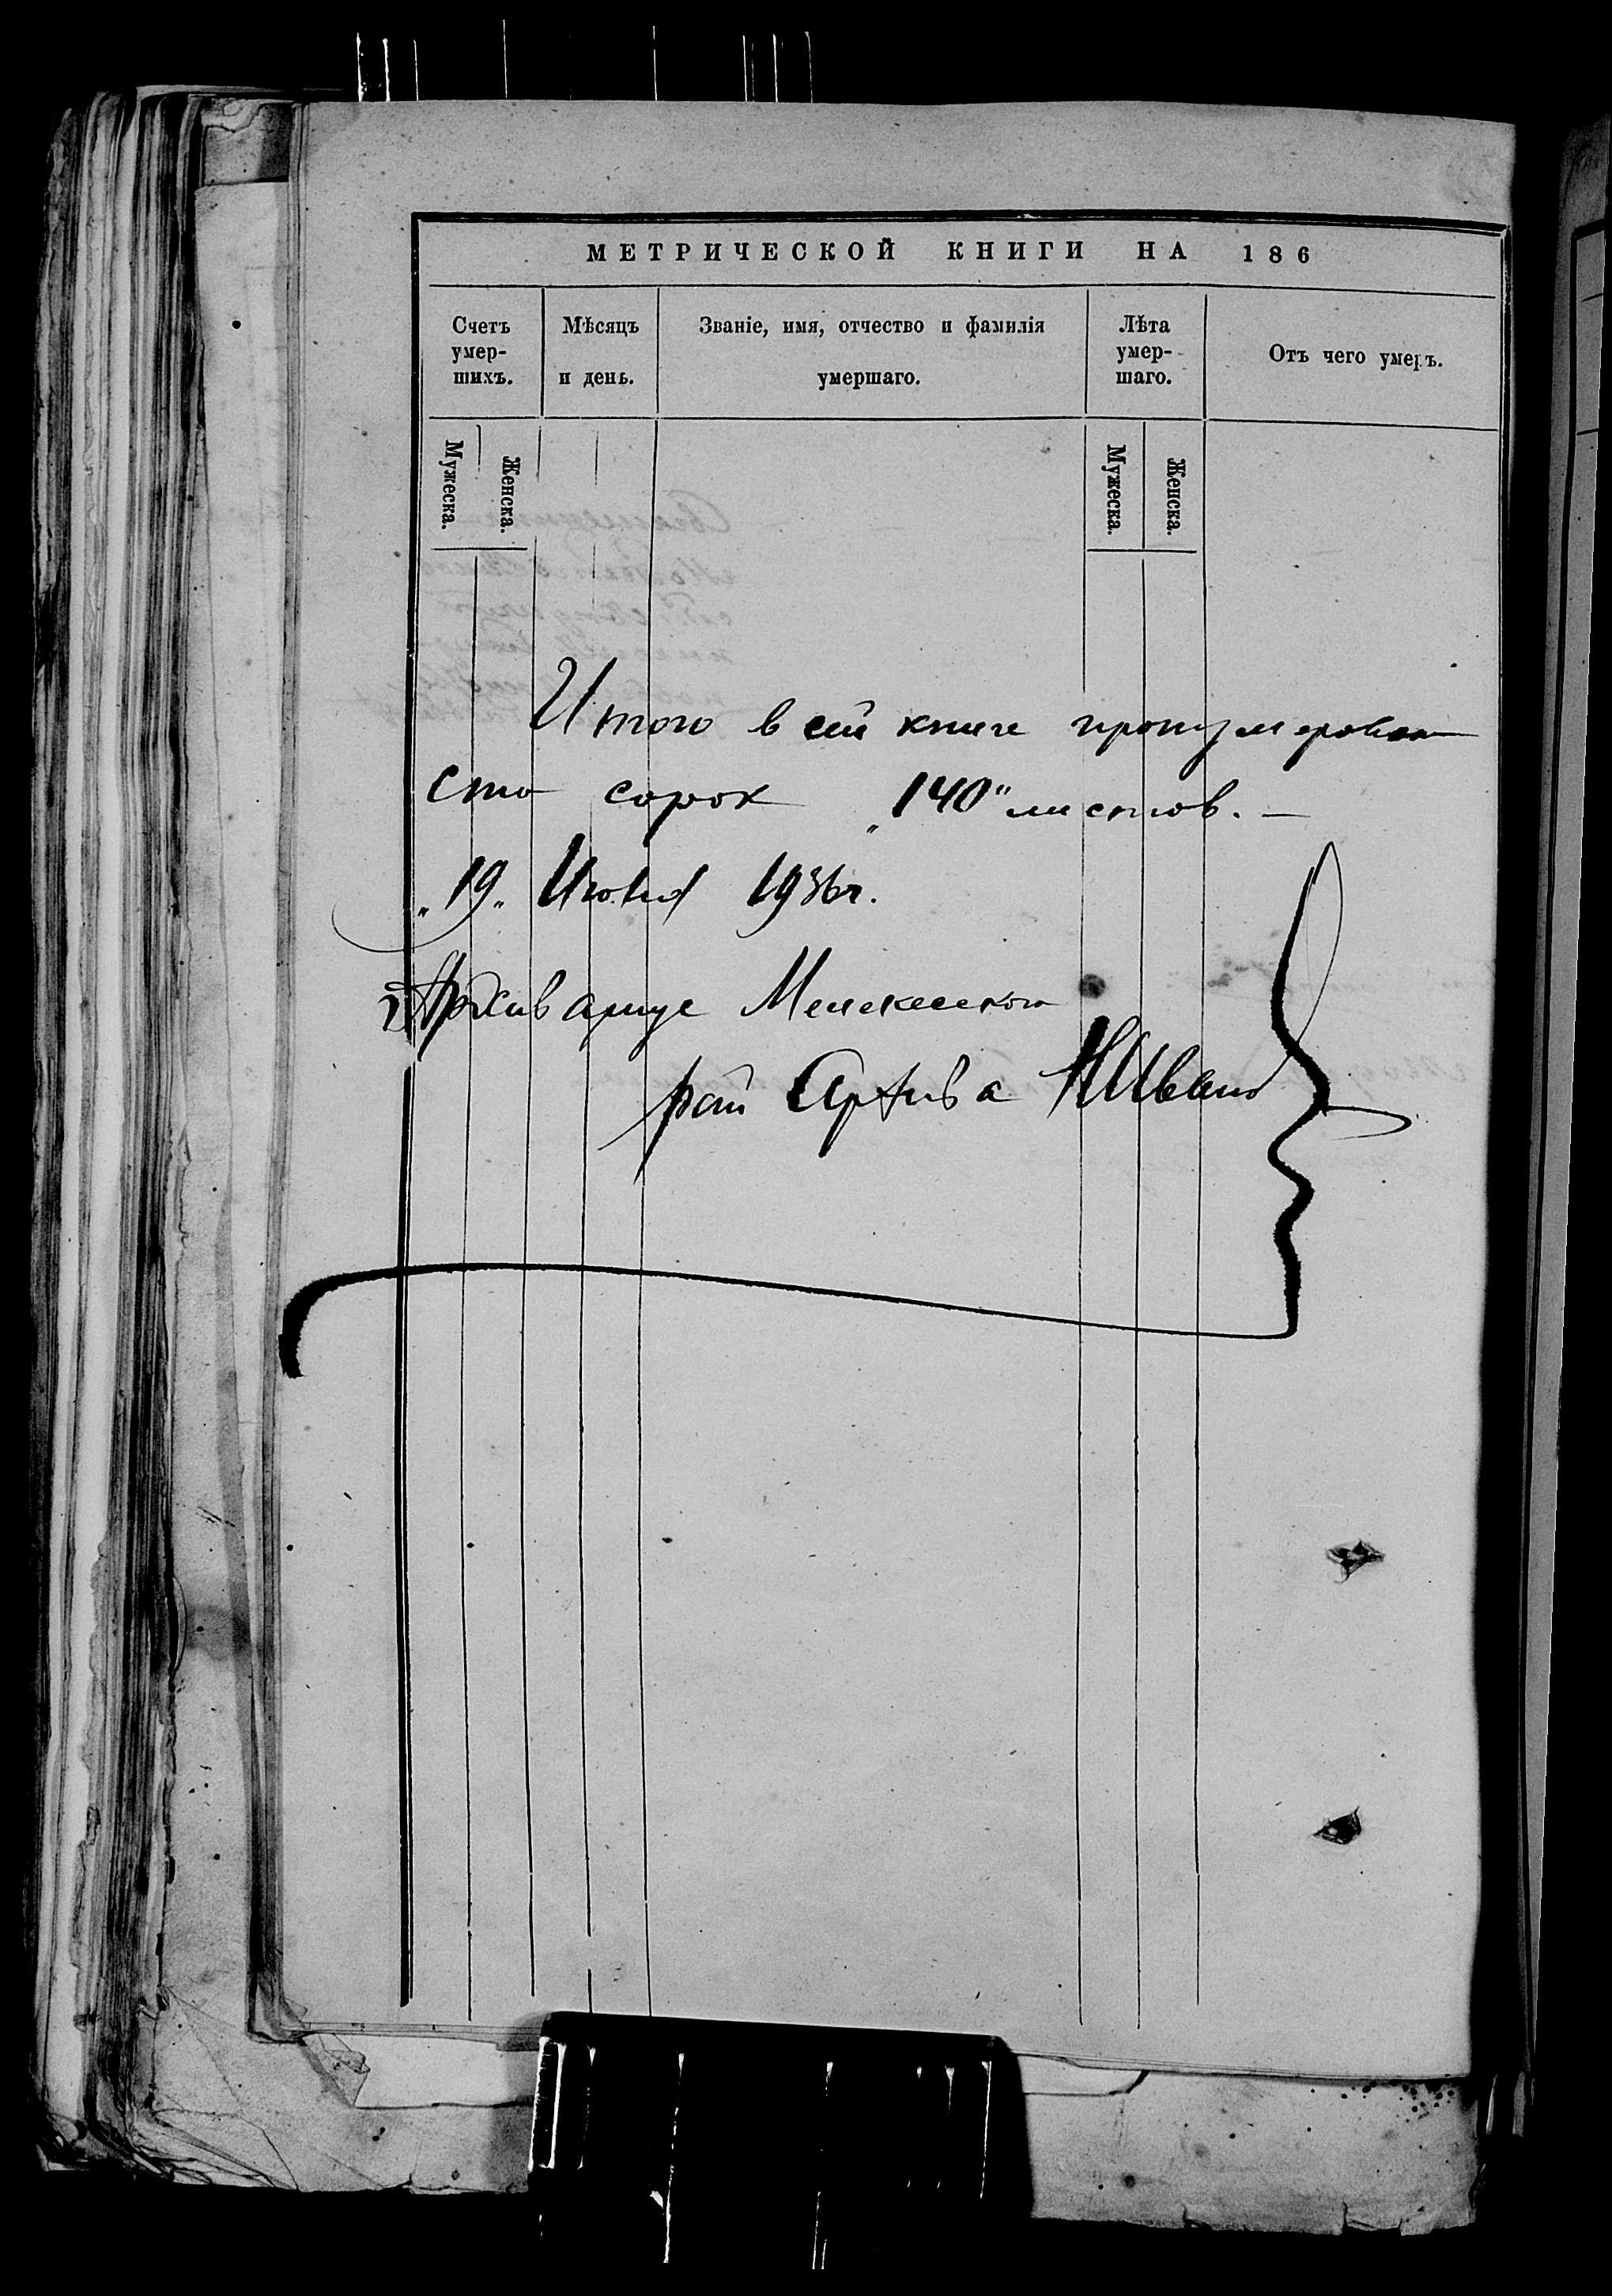 МЕТРИЧЕСКОЙ КНИГИ НА 186
Счетъ умер-шихъ.
Мѣсяцъ и день.
Званіе, имя, отчество и фамилія умершаго.
Лѣта умер-шаго.
Отъ чего умеръ.
Мужеска.
Женска.
Мужеска.
Женска.
Итого в сей книге пронумерован
сто сорок „140" листов. —
„19„ Июня 1936 г.
Архивариус Мелекесского
рай Архива НИванов